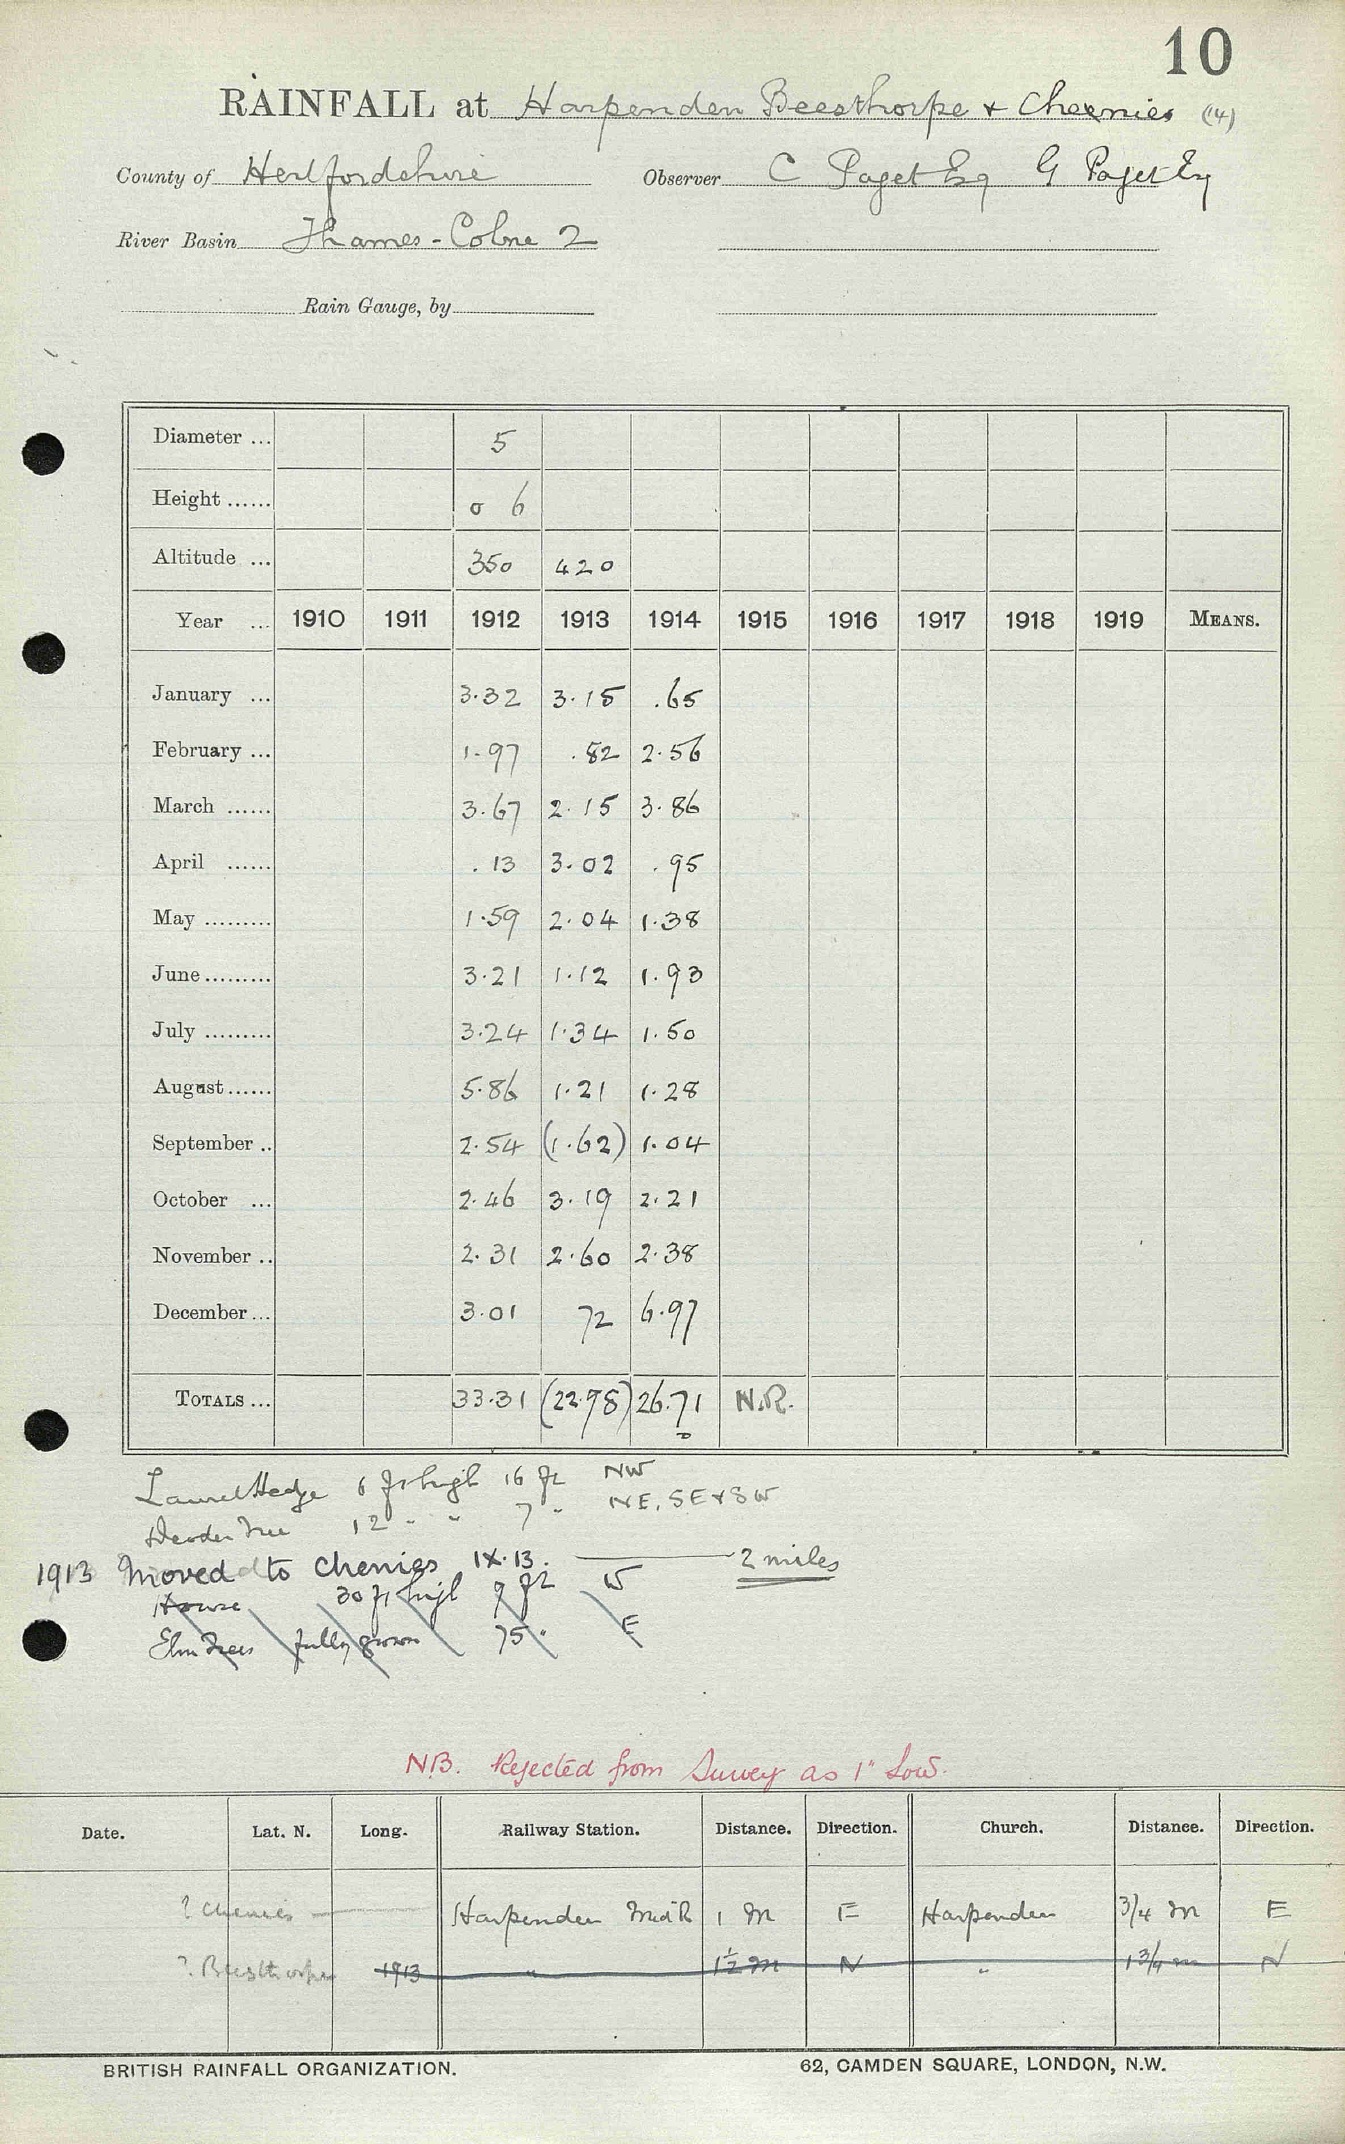 10
RAINFALL at Harpenden Beesthorpe + Cheenies (14)
County of Hertfordshire Observer C Paget Esq G Paget Esq
River Basin Thames - Colne 2
Rain Gauge, by
Diameter ... 5
Height ...... 0 6
Altitude ... 350 420
Year ... 1910 1911 1912 1913 1914 1915 1916 1917 1918 1919 MEANS.
January ... 3.32 3.15 .65
February ... 1.97 .82 2.56
March ...... 3.67 2.15 3.86
April ...... .13 3.02 .95
May ......... 1.59 2.04 1.38
June ......... 3.21 1.12 1.93
July ......... 3.24 1.34 1.50
August ...... 5.86 1.21 1.28
September .. 2.54 (1.62) 1.04
October ... 2.46 3.19 2.21
November .. 2.31 2.60 2.38
December ... 3.01 72 6.97
TOTALS ... 33.31 (22.98) 26.71 N.R.
Laurel Hedge 6 ft high 16 ft NW
Deodar Tree 12 " " 7 " NE, SE & SW
1913 Moved to Chenies IX.13. 2 miles
House 30 ft high 9 ft W
Elm Trees fully grown 75 " E
N.B. Rejected from Survey as 1" low.
Date. Lat. N. Long. Railway Station. Distance. Direction. Church. Distance. Direction.
? Chenies Harpenden Mid R 1 M E Harpenden 3/4 M E
? Beesthorpe 1913 " 1 1/2 M N " 1 3/4 m N
BRITISH RAINFALL ORGANIZATION. 62, CAMDEN SQUARE, LONDON, N.W.